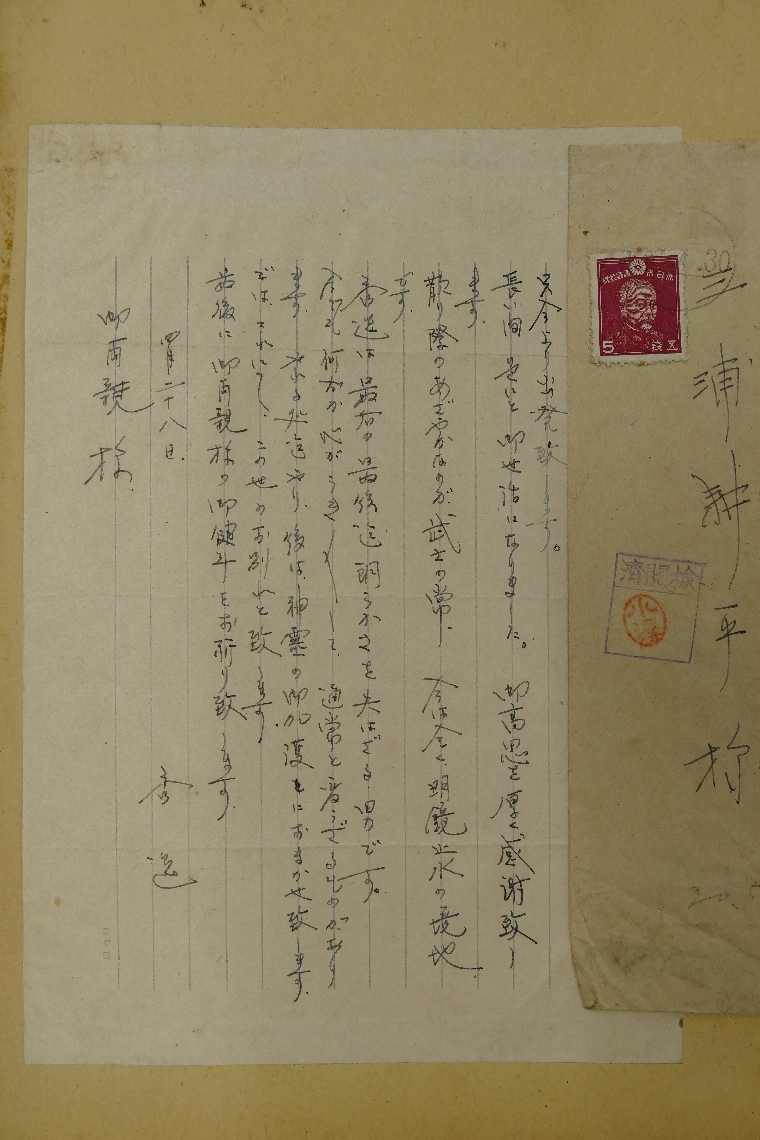 只今より出発致します。
長い間色々と御世話になりました。御高恩を厚く感謝致し
ます。
散り際のあざやかなのが武士の常、今は全く明鏡止水の境地
です。
最後の最後迄朗らかさを失はざる男です。
今でも何だか心がうきうきして、通常と変らざるものがあり
ます。やる処迄やり、後は神霊の御加護におまかせ致します。
では、これにて、この世のお別れと致します。
最後に御両親様の御健斗をお祈り致します。
四月二十八日
御両親様
三浦 平様
検閲済
大日本帝国郵便
5
五銭